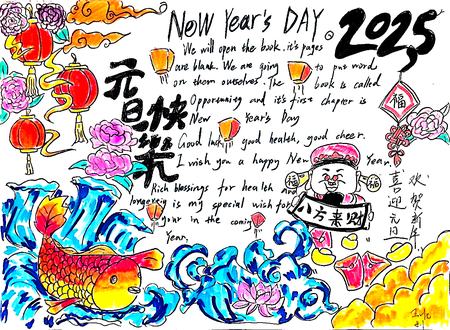 New Year's DAY.
2025
We will open the book. it's pages
are blank. We are going to put word
on them ourselves. The book is called
Opportunity and it's first chapter is
New Year's Day
Good luck, good health, good cheer.
I wish you a happy New Year.
Rich blessings for health and
longevity is my special wish for
your in the coming
Year.
元旦快樂
福
八方来财
欢贺新年
喜迎元旦